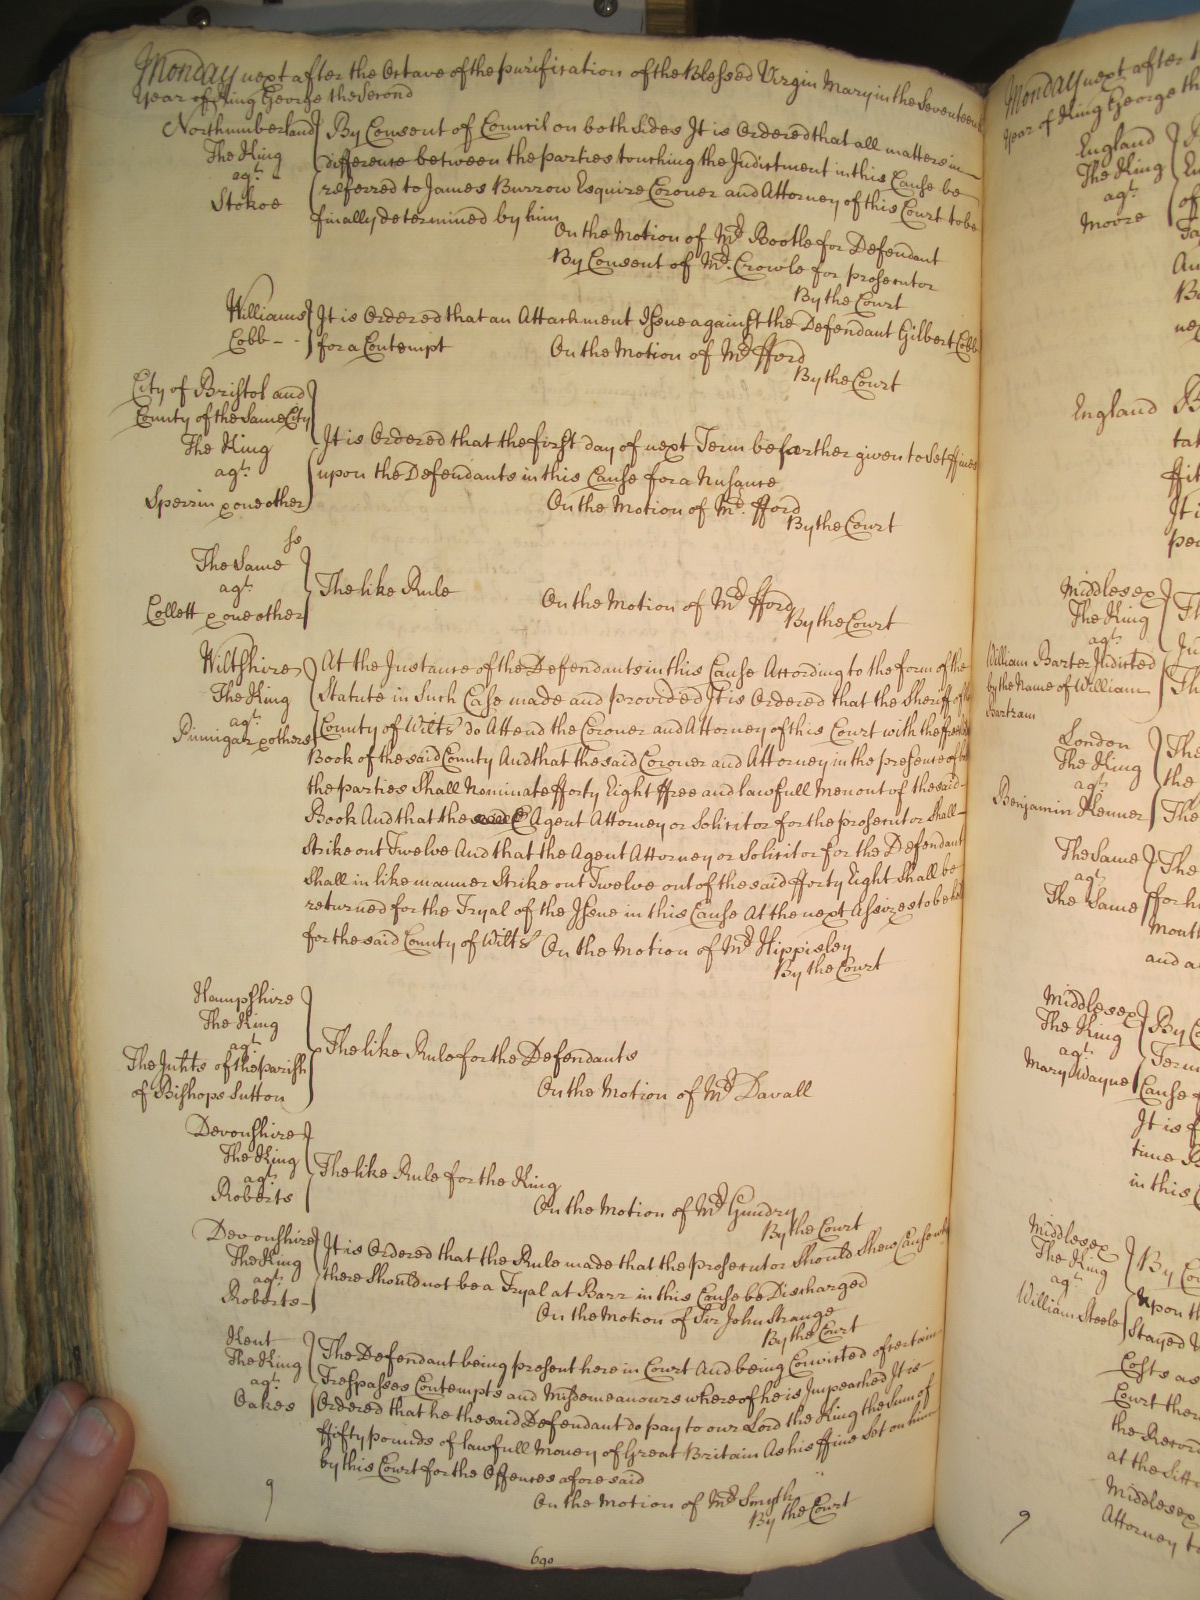 Monday next after the Octave of the purification of the Blessed Virgin Mary in the Seventeenth
year of King George the Second
Northumberland
The King
agt.
Stokoe
By Consent of Council on both sides It is Ordered that all matters in
difference between the parties touching the Indictment in this Cause be
referred to James Burrow Esquire Coroner and Attorney of this Court to be
finally determined by him
On the Motion of Mr. Bootle for Defendant
By Consent of Mr. Crowle for prosecutor
By the Court
Williams
Cobb
It is Ordered that an Attachment Issue against the Defendant Gilbert Cobb
for a Contempt
On the Motion of Mr. fford
By the Court
City of Bristol and
County of the Same City
The King
agt.
Sperrin & one other
It is Ordered that the first day of next Term be farther given to Set ffines
upon the Defendants in this Cause for a Nusance
On the Motion of Mr. fford
By the Court
The Same
agt.
Collett & one other
The like Rule
On the Motion of Mr. fford
By the Court
Wiltshire
The King
agt.
Pinnigar & others
At the Instance of the Defendants in this Cause According to the form of the
Statute in Such Case made and provided It is Ordered that the Sheriff of the
County of Wilts do Attend the Coroner and Attorney of this Court with the
Book of the said County And that the said Coroner and Attorney in the presence of
the parties Shall Nominate fforty Eight ffree and lawfull Men out of the said
Book And that the Agent Attorney or Solicitor for the prosecutor Shall
Strike out Twelve And that the Agent Attorney or Solicitor for the Defendant
Shall in like manner Strike out Twelve out of the said fforty Eight Shall be
returned for the Tryal of the Issue in this Cause At the next Assizes to be held
for the said County of Wilts
On the Motion of Mr. Hippisley
By the Court
Hampshire
The King
agt.
The Inhts of the parish
of Bishops Sutton
The like Rule for the Defendants
On the Motion of Mr. Davall
Devonshire
The King
agt.
Roberts
The like Rule for the King
On the Motion of Mr. Gundry
By the Court
Devonshire
The King
agt.
Roberts
It is Ordered that the Rule made that the prosecutor Should Shew Cause why
there Should not be a Tryal at Barr in this Cause be Discharged
On the Motion of Sir John Strange
By the Court
Kent
The King
agt.
Oakes
The Defendant being present here in Court And being Convicted of certain
Trespasses Contempts and Misdemeanours whereof he is Impeached It is
Ordered that he the said Defendant do pay to our Lord the King the Sum of
ffifty pounds of lawfull Money of Great Britain As his ffine Set on him
by this Court for the Offences aforesaid
On the Motion of Mr. Smyth
By the Court
9
690
Monday next after
year of King George
England
The King
agt.
Moore
of
England
It i
Middlesex
The King
agt.
William Barter Indicted
by the Name of William
Bartram
London
The King
agt.
Benjamin Kenner
The
the
The
The Same
agt.
The Same
The
for h
Mont
and a
Middlesex
The King
agt.
Mary Wayne
By C
Term
Cause
It is f
time
in this
Middlesex
The King
agt.
William Steele
By Co
Upon th
Stayed
Costs as
Court ther
the Record
at the Sitt
Middlesex
Attorney to
9